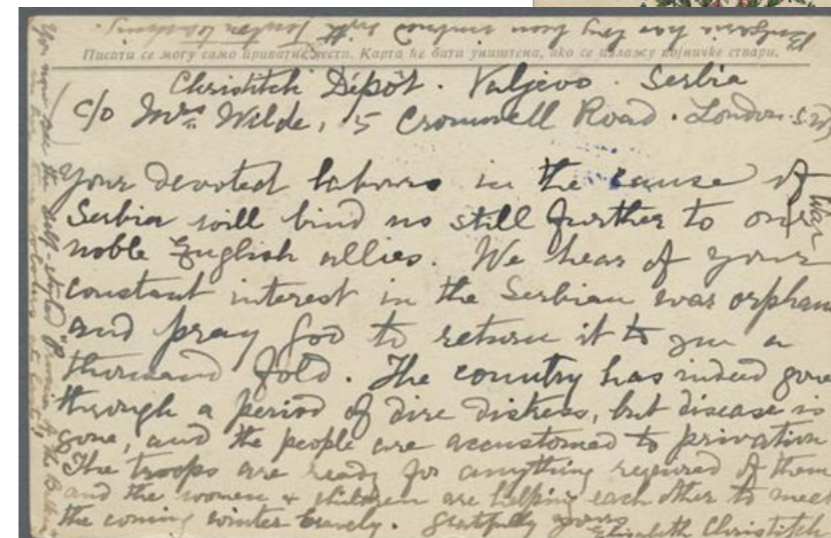 Писати се могу само приватне вести. Карта ће бити уништена, ако се излажу војничке ствари.
Christitch Dépôt. Valjevo. Serbia
c/o Mrs. Wilde, 5 Cromwell Road. London. S.W.
Your devoted labours in the cause of
Serbia will bind us still further to our
noble English allies. We hear of your
constant interest in the Serbian war orphan
and pray God to return it to you a
thousand fold. The country has indeed gone
through a period of dire distress, but disease is
gone, and the people are accustomed to privation
The troops are ready for anything required of them
and the women & children are helping each other to meet
the coming winter bravely. Gratefully yours
Elisabeth Christitch
War
You now see the self-styled
Bulgaria has long been